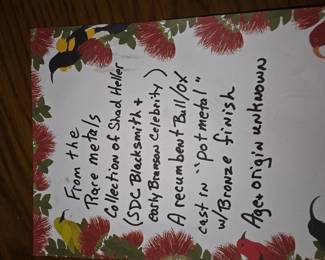 From the
Rare metals
Collection of Shad Heller
(SDC Blacksmith +
early Branson Celebrity)
A recumbent Bull/ox
cast in "pot metal"
w/Bronze finish
Age + origin unknown